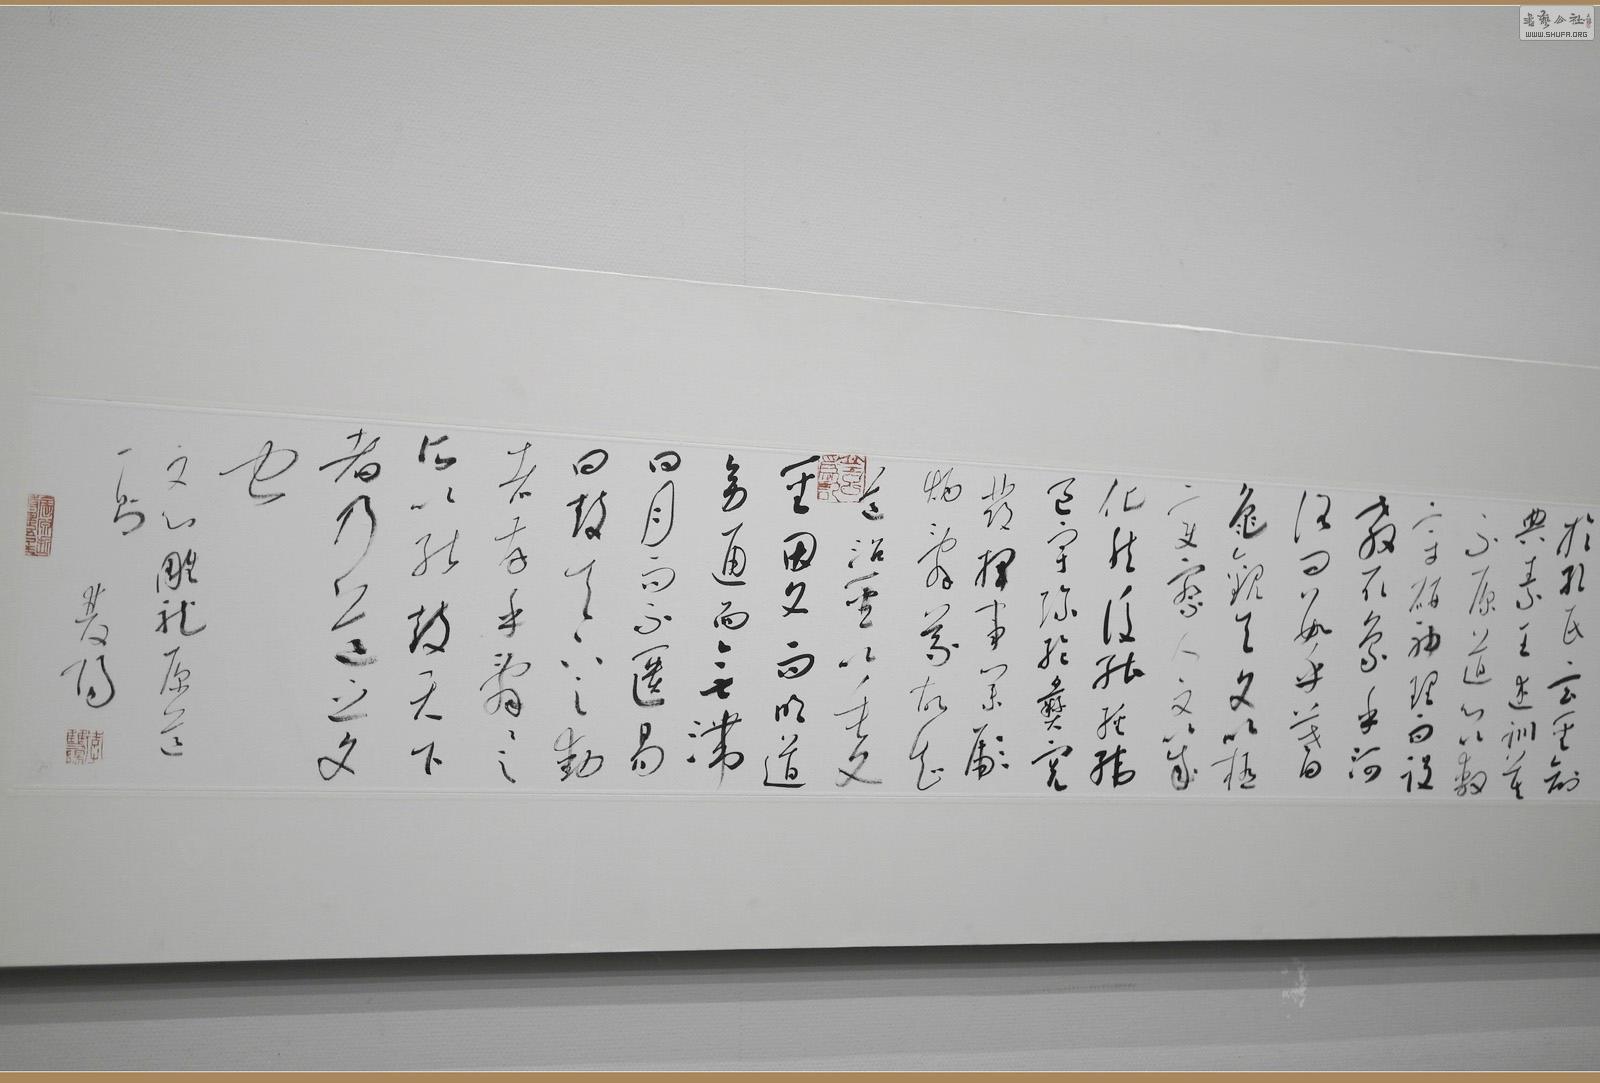 於孔氏玄聖創
典素王述訓莫
不原道心以敷
章研神理而設
教取象乎河
洛問數乎蓍
龜觀天文以極
變察人文以成
化然後能經緯
區宇彌綸彝憲
發揮事業彪
炳辭義故知
道沿聖以垂文
聖因文而明道
旁通而無滯
日用而不匱易
曰鼓天下之動
者存乎辭辭之
所以能鼓天下
者乃道之文
也
文心雕龍原道
一節
WWW.SHUFA.ORG